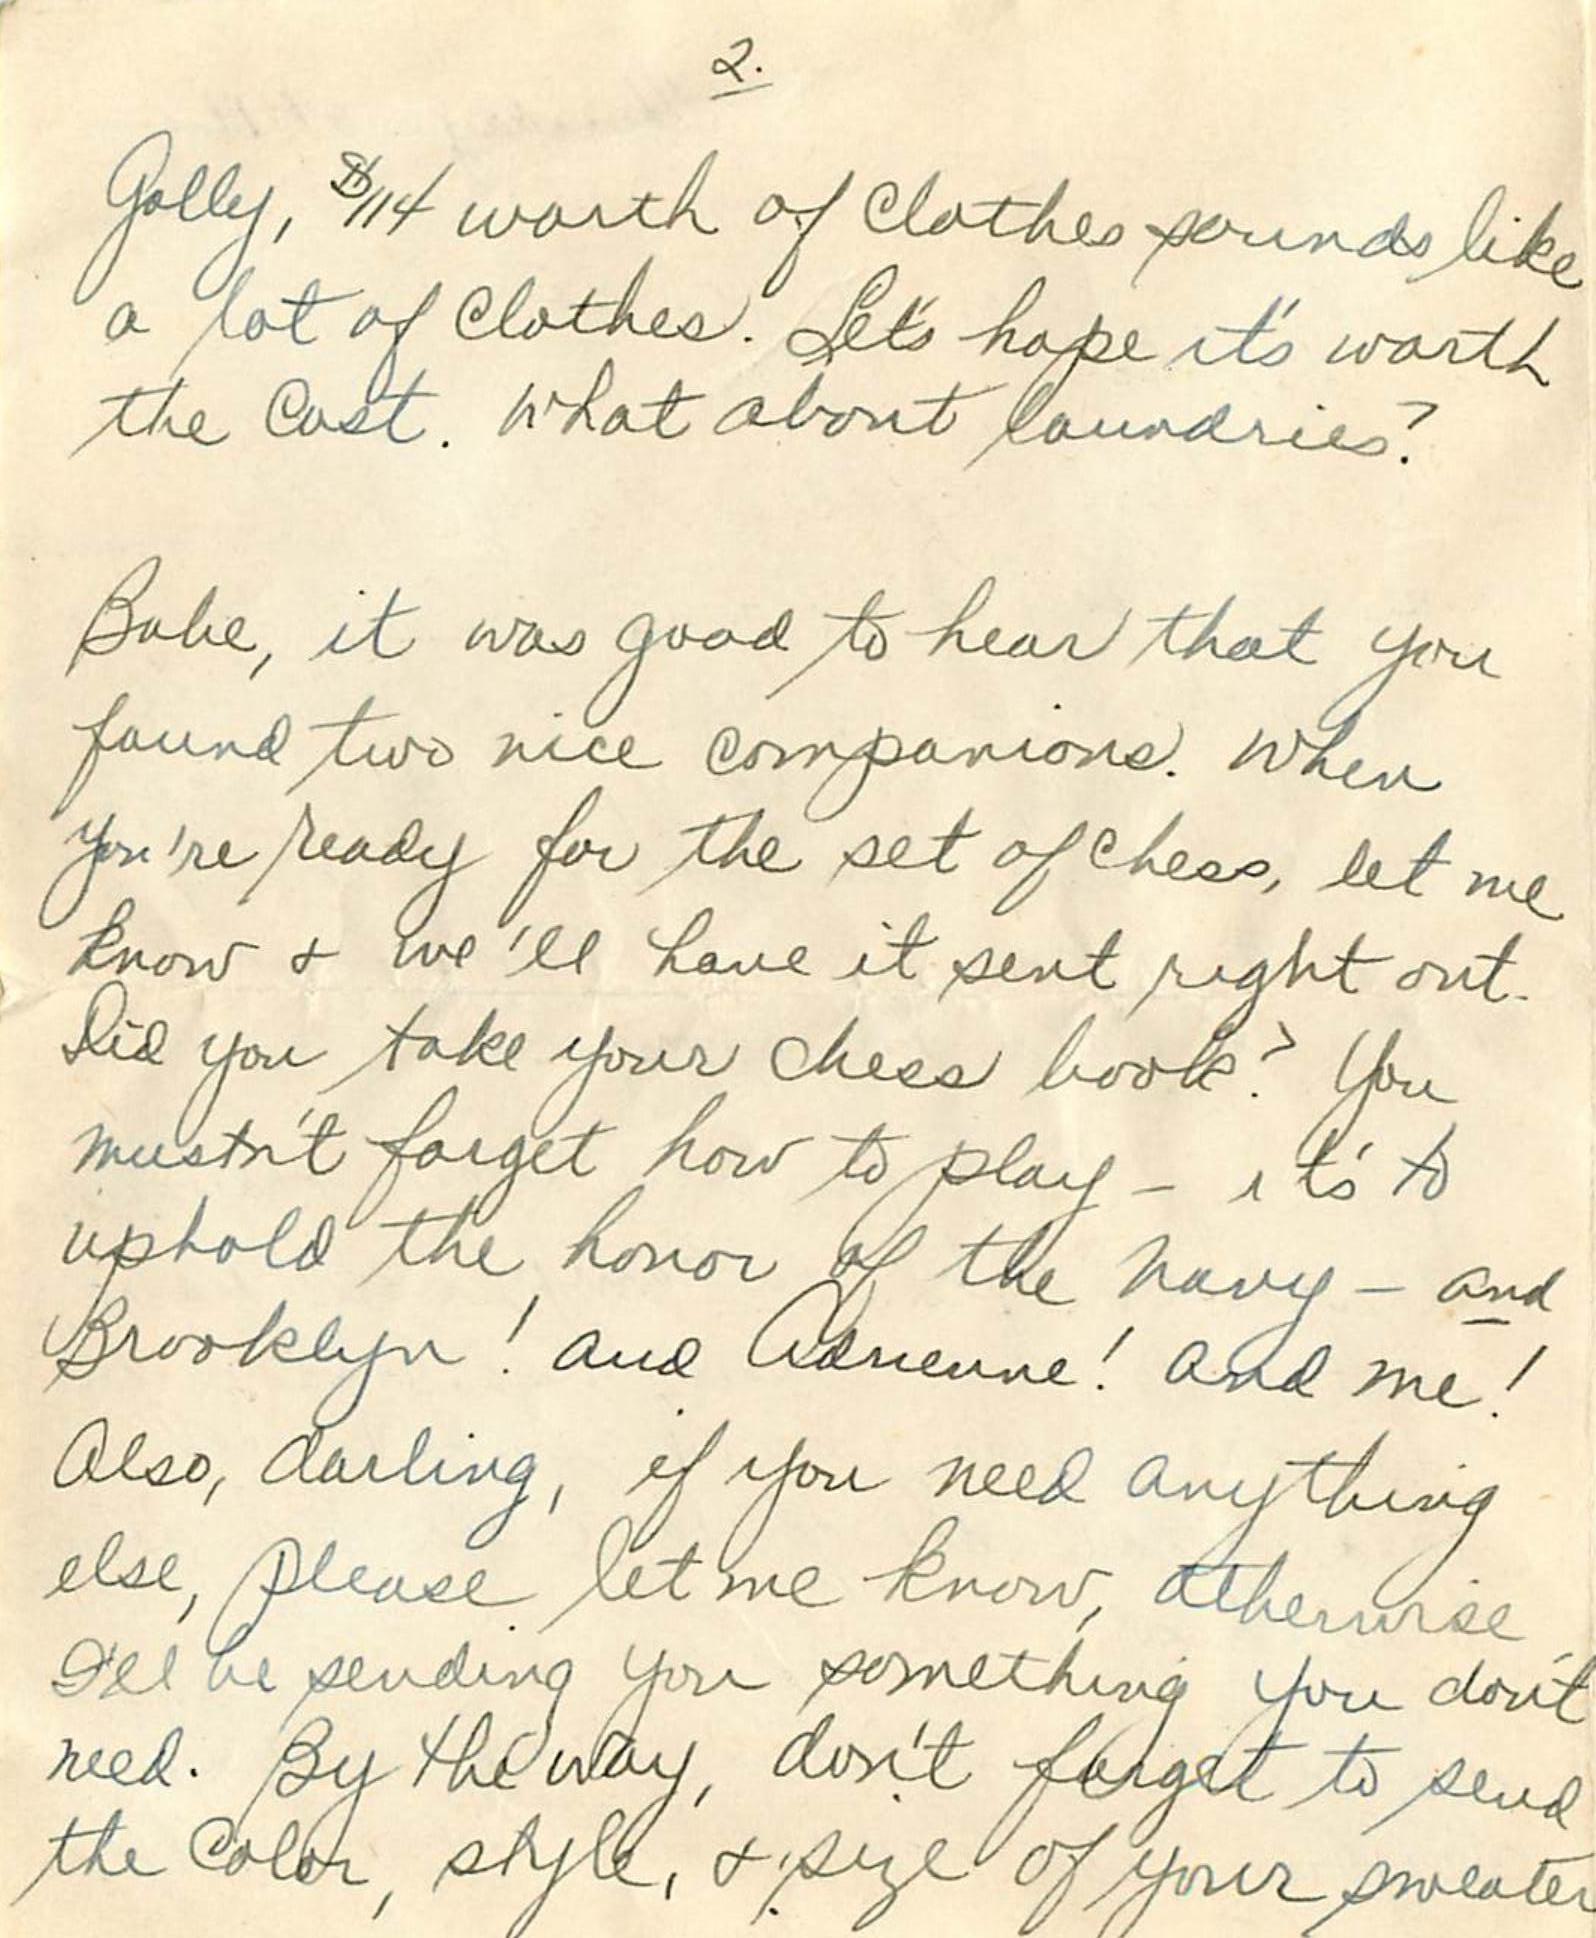 2.
Golly, $114 worth of clothes sounds like
a lot of clothes. Let's hope it's worth
the cost. What about laundries?
Babe, it was good to hear that you
found two nice companions. When
you're ready for the set of chess, let me
know & we'll have it sent right out.
Did you take your chess book? You
mustn't forget how to play – it's to
uphold the honor of the Navy – and
Brooklyn! and Adrienne! and me!
Also, darling, if you need anything
else, please let me know, otherwise
I'll be sending you something you don't
need. By the way, don't forget to send
the color, style, & size of your sweater